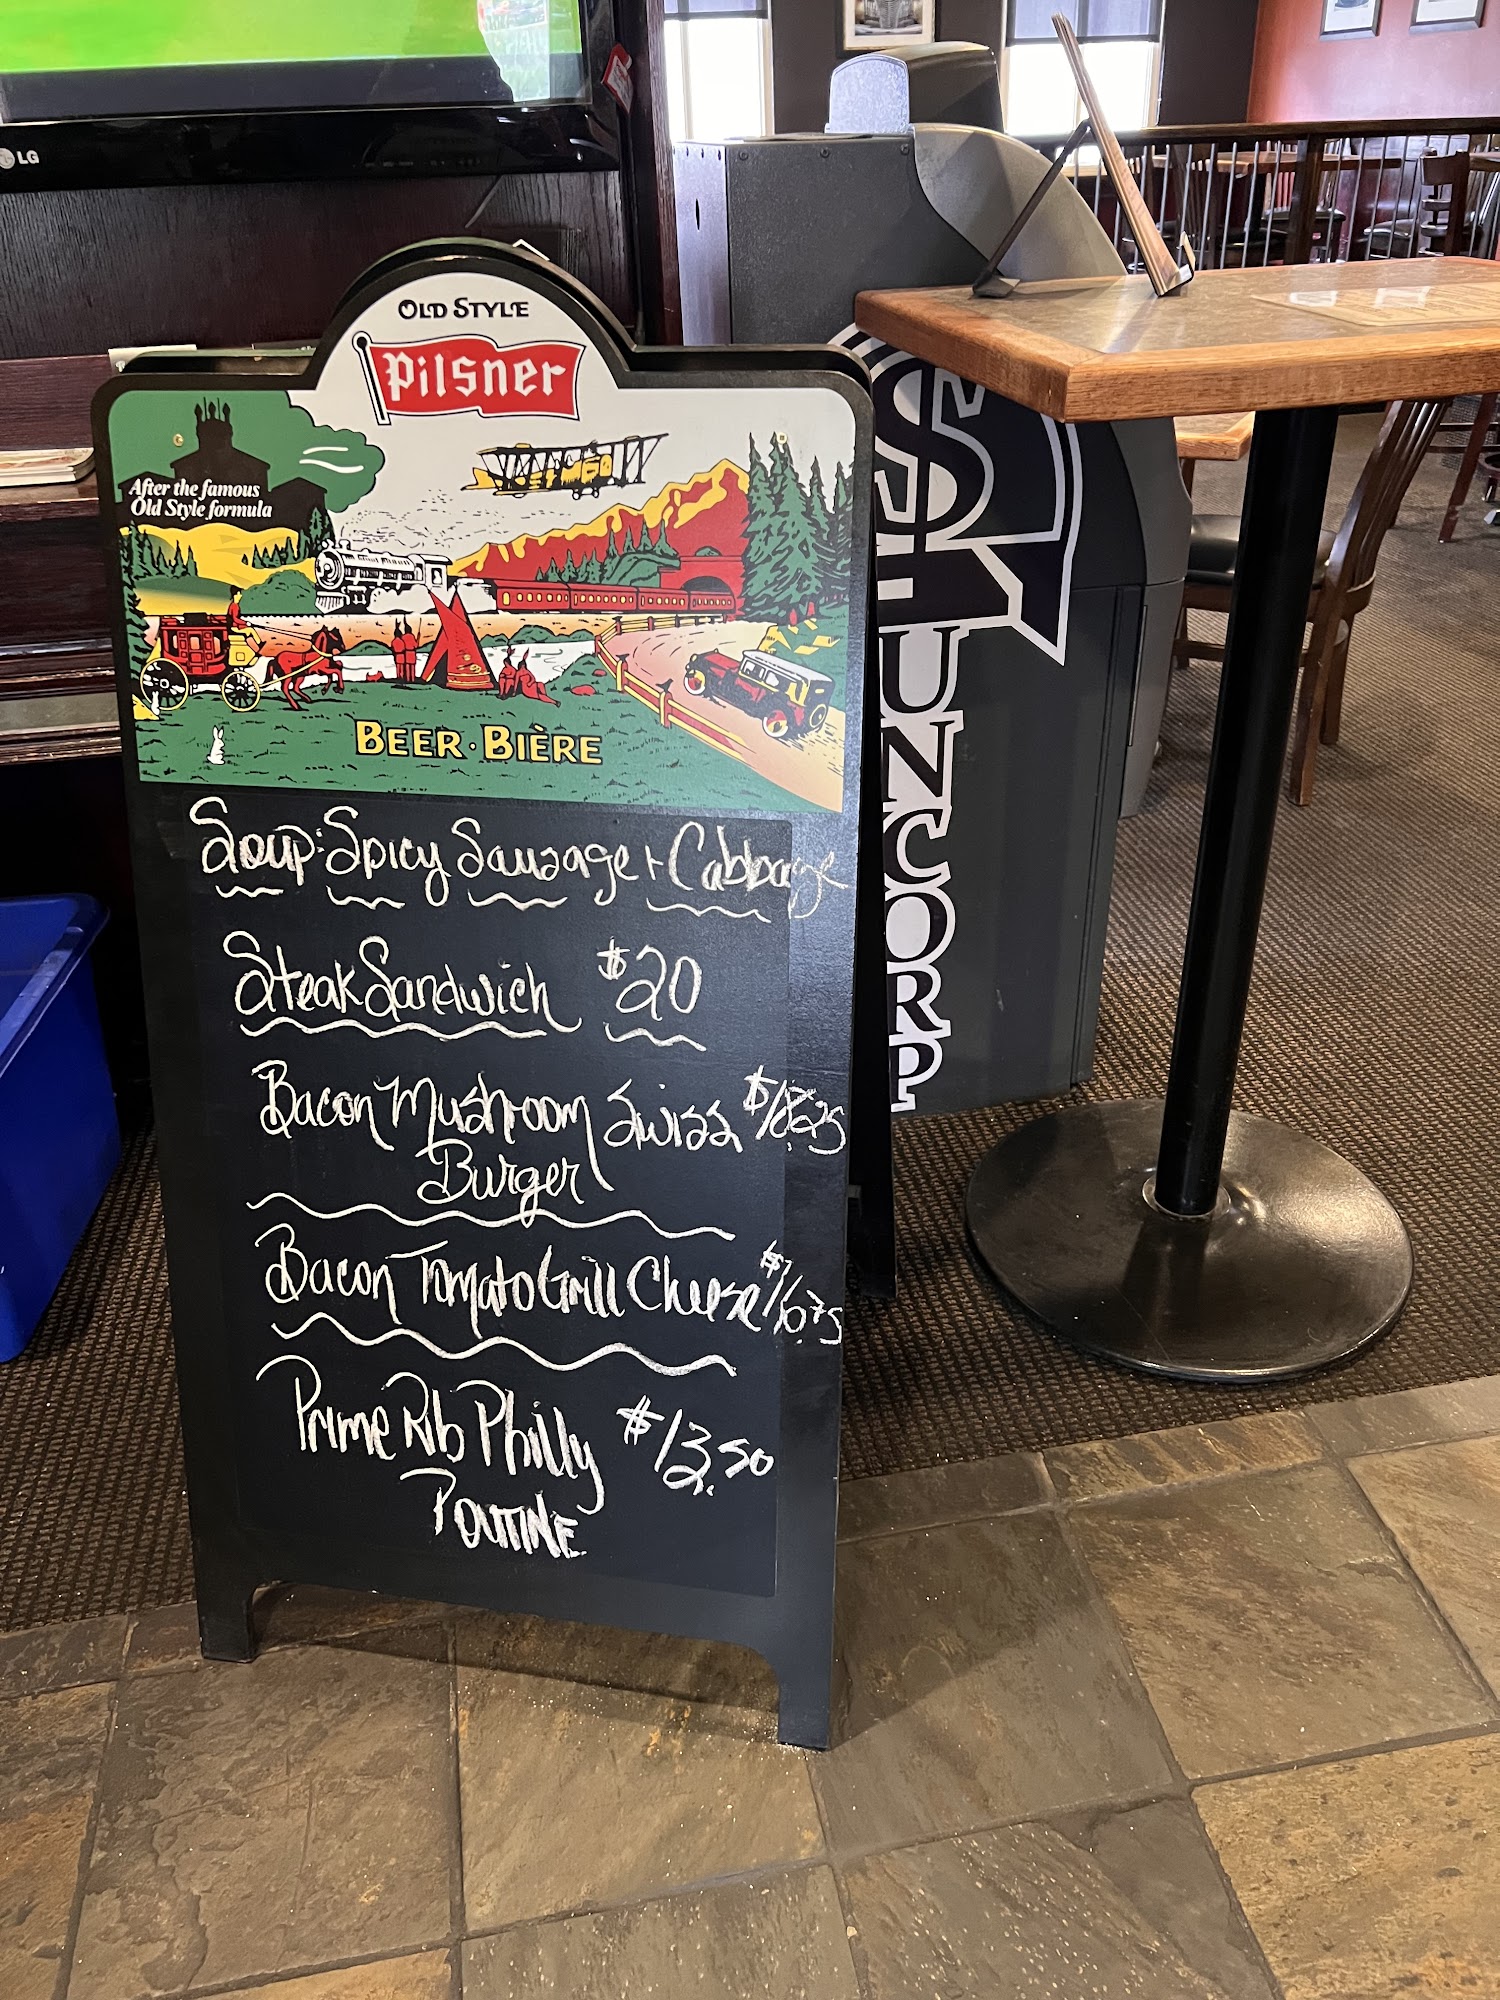 LG
OLD STYLE
Pilsner
After the famous
Old Style formula
BEER · BIÈRE
Soup: Spicy Sausage + Cabbage
Steak Sandwich $20
Bacon Mushroom Swiss $18.25
Burger
Bacon Tomato Grill Cheese $16.75
Prime Rib Philly $13.50
POUTINE
UNCORP